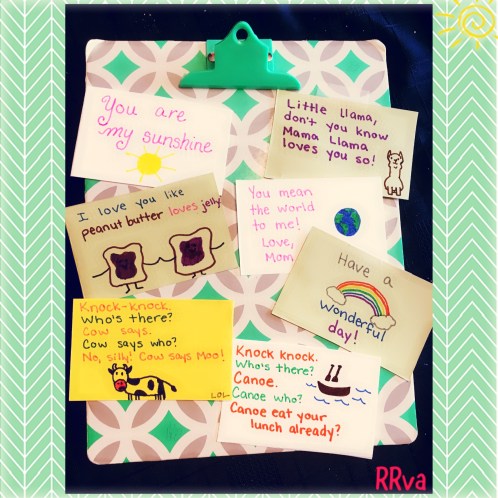 You are
my sunshine
Little llama,
don't you know
Mama Llama
loves you so!
I love you like
peanut butter loves jelly!
You mean
the world
to me!
Love,
Mom
Have a
wonderful
day!
Knock-knock.
Who's there?
Cow says.
Cow says who?
No, silly! Cow says Moo!
LOL
Knock knock.
Who's there?
Canoe.
Canoe who?
Canoe eat your
lunch already?
RRva